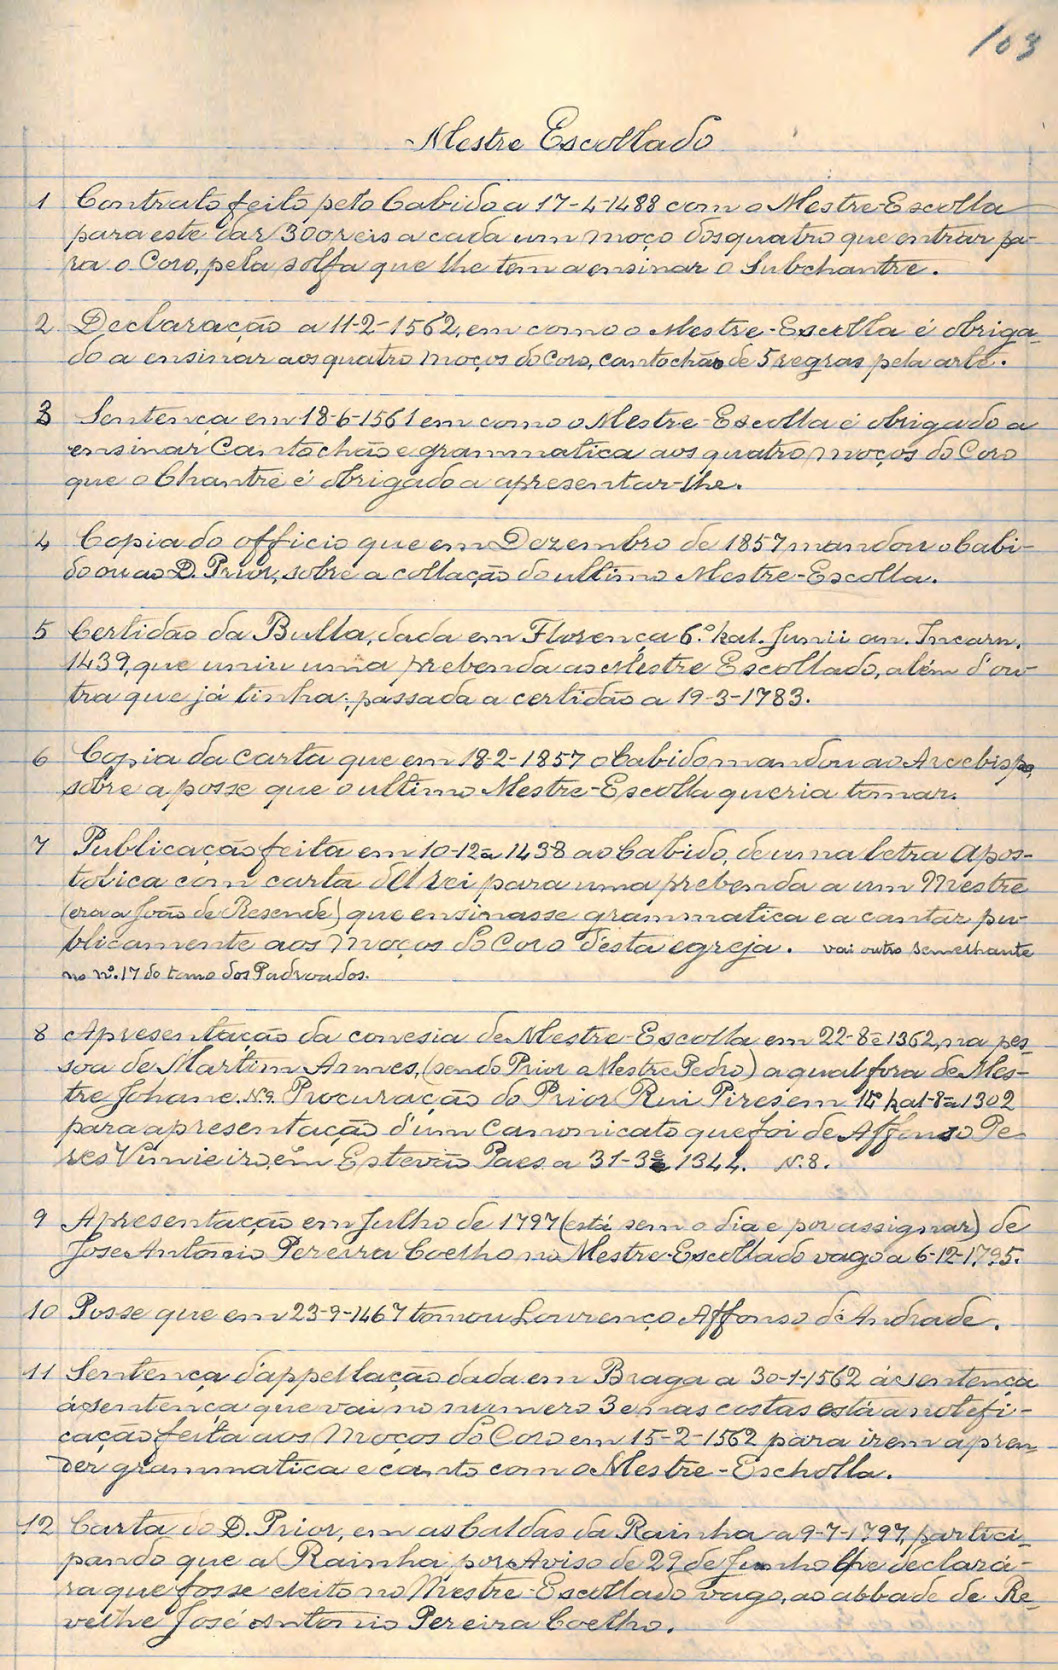 103
Mestre Escollado
1 Contrato feito pelo Cabido a 17-4-1488 com o Mestre-Escolla
para este dar 300 reis a cada um moço dos quatro que entrar pa-
ra o Coro, pela solfa que lhe tem a ensinar o Subchantre.
2 Declaração a 11-2-1562, em como o Mestre-Escolla é obriga-
do a ensinar aos quatro moços do Coro, cantochão de 5 regras pela arte.
3 Sentença em 18-6-1561 em como o Mestre-Escolla é obrigado a
ensinar Cantochão e grammatica aos quatro moços do Coro
que o Chantre é obrigado a apresentar-lhe.
4 Copia do officio que em Dezembro de 1857 mandou o Cabi-
do ou ao D. Prior, sobre a collação do ultimo Mestre-Escolla.
5 Certidão da Bulla, dada em Florença 6.º kal. Junii an. Incarn.
1439, que uniu uma prebenda ao Mestre Escollado, além d'ou-
tra que já tinha; passada a certidão a 19-3-1783.
6 Copia da carta que em 18-2-1857 o Cabido mandou ao Arcebispo,
sobre a posse que o ultimo Mestre-Escolla queria tomar.
7 Publicação feita em 10-12-1438 ao Cabido, de uma letra Apos-
tolica com carta d'El rei para uma prebenda a um Mestre
(era a João de Resende) que ensinasse grammatica e a cantar pu-
blicamente aos moços do Coro d'esta egreja. vai outro semelhante
no nº. 17 do tomo dos Padroados.
8 Apresentação da conesia de Mestre-Escolla em 22-8-1362, na pes-
soa de Martim Annes, (sendo Prior a Mestre Pedro) a qual fora de Mes-
tre Johane. N.9. Procuração do Prior Rui Pires em kal-8-1302
para apresentação d'um Canonicato que foi de Affonso Pe-
res Vimieiro, em Estevão Paes a 31-3-1344. N.8.
9 Apresentação em Julho de 1797 (está sem o dia e por assignar) de
José Antonio Pereira Coelho no Mestre-Escollado vago a 6-12-1795.
10 Posse que em 23-9-1467 tomou Lourenço Affonso d'Andrade.
11 Sentença d'appellação dada em Braga a 30-1-1562 á sentença
á sentença que vai no numero 3 e nas costas está a notifi-
cação feita aos Moços do Coro em 15-2-1562 para irem apren-
der grammatica e canto com o Mestre-Escholla.
12 Carta do D. Prior, em as Caldas da Rainha a 9-7-1797, partici-
pando que a Rainha, por Aviso de 29 de Junho lhe declará-
ra que fosse eleito no Mestre-Escollado vago, ao abbade de Re-
velhe José Antonio Pereira Coelho.